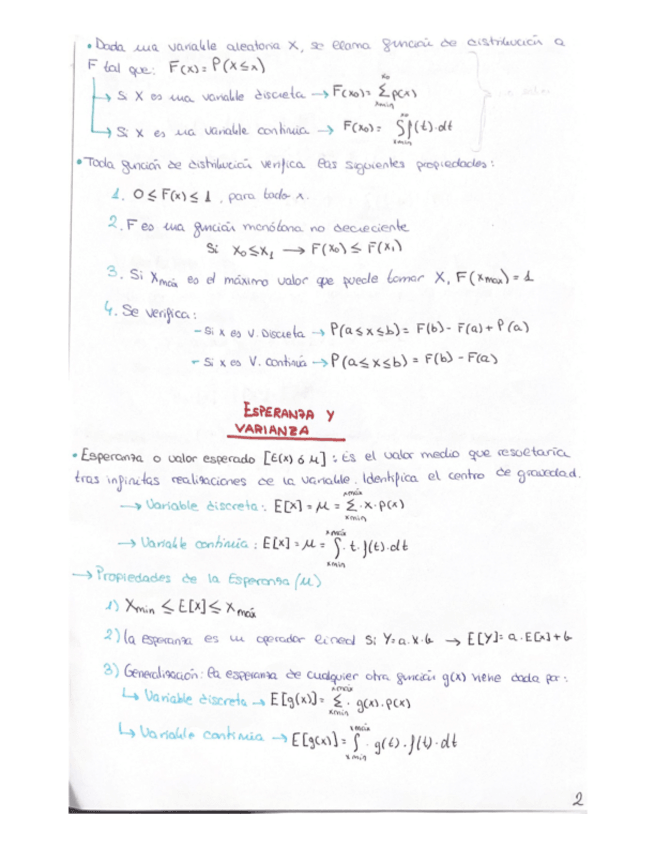 • Dada una variable aleatoria X, se llama función de distribución a
F tal que: F(x) = P(X ≤ x)
→ Si X es una variable discreta → F(x₀) = Σ_{xmin}^{x₀} p(x)
→ Si X es una variable continua → F(x₀) = ∫_{xmin}^{x₀} f(t)·dt
• Toda función de distribución verifica las siguientes propiedades:
1. 0 ≤ F(x) ≤ 1, para todo x.
2. F es una función monótona no decreciente
Si x₀ ≤ x₁ → F(x₀) ≤ F(x₁)
3. Si Xmáx es el máximo valor que puede tomar X, F(xmax) = 1
4. Se verifica:
- Si x es V. Discreta → P(a ≤ x ≤ b) = F(b) - F(a) + P(a)
- Si x es V. Continua → P(a ≤ x ≤ b) = F(b) - F(a)
ESPERANZA Y
VARIANZA
• Esperanza o valor esperado [E(x) ó μ]: Es el valor medio que resultaría
tras infinitas realizaciones de la variable. Identifica el centro de gravedad.
→ Variable discreta: E[x] = μ = Σ_{xmin}^{xmáx} · x · p(x)
→ Variable continua: E[x] = μ = ∫_{xmin}^{xmáx} · t · f(t)·dt
→ Propiedades de la Esperanza (μ)
1) Xmin ≤ E[x] ≤ Xmáx
2) la esperanza es un operador lineal Si Y = a·x·b → E[Y] = a·E[x] + b
3) Generalización: la esperanza de cualquier otra función g(x) viene dada por:
↳ Variable discreta → E[g(x)] = Σ_{xmin}^{xmáx} · g(x)·p(x)
↳ Variable continua → E[g(x)] = ∫_{xmin}^{xmáx} · g(t)·f(t)·dt
2